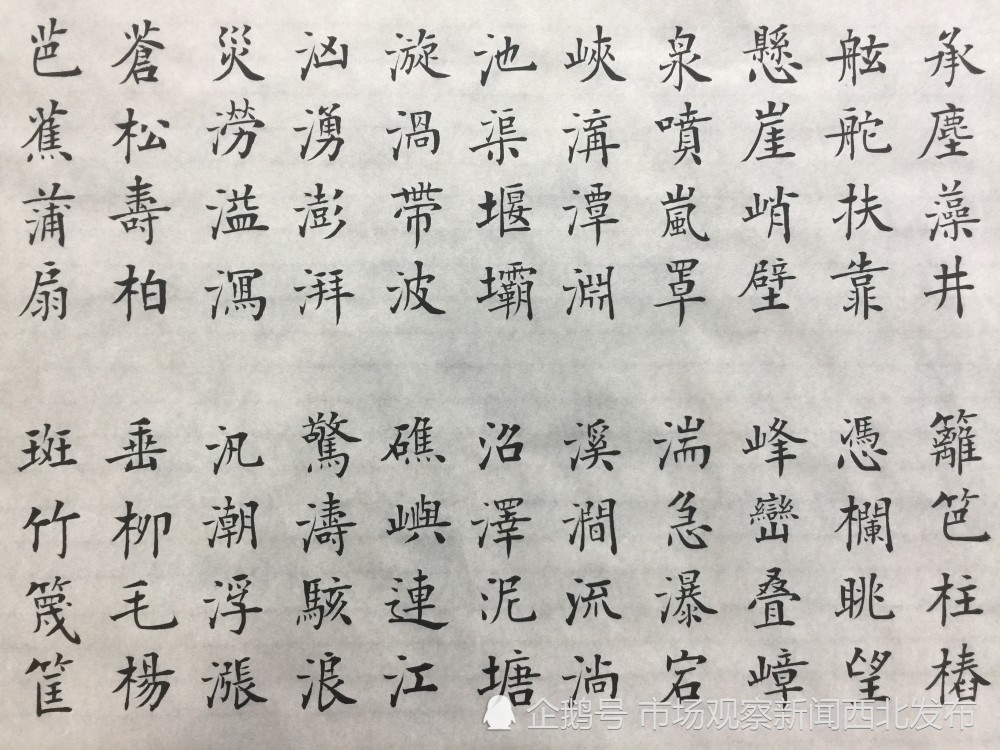 承塵藻井 籬笆柱樁
舷舵扶靠 憑欄眺望
懸崖峭壁 峰巒叠嶂
泉噴嵐罩 湍急瀑宕
峽溝潭淵 溪澗流淌
池渠堰壩 沼澤泥塘
漩渦帶波 礁嶼連江
汹湧澎湃 驚濤駭浪
災澇溢瀉 汛潮浮漲
蒼松壽柏 垂柳毛楊
芭蕉蒲扇 斑竹篾筐
企鹅号 市场观察新闻西北发布